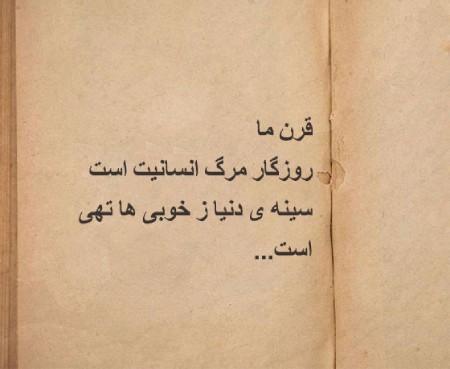 قرن ما
روزگار مرگ انسانیت است
سینه ی دنیا ز خوبی ها تهی
است...